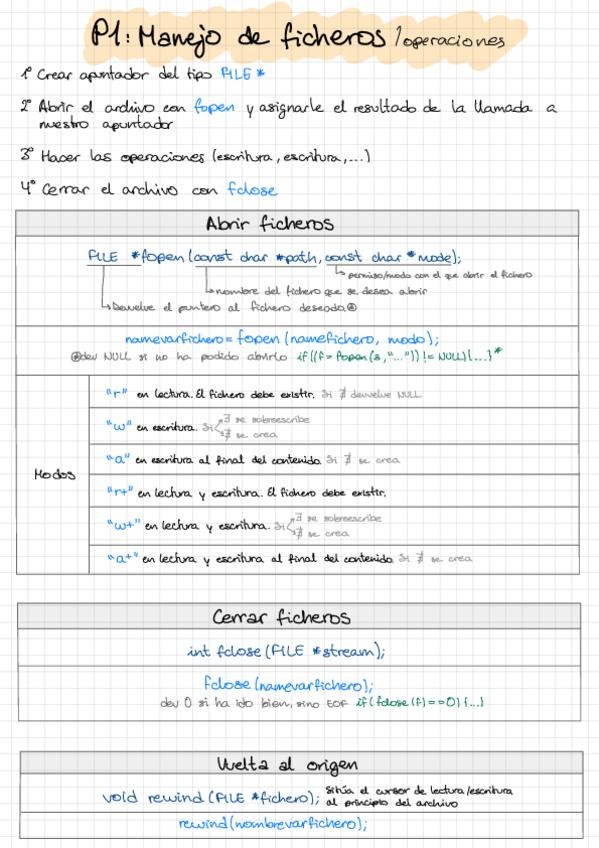 P1: Manejo de ficheros / operaciones
1º Crear apuntador del tipo FILE *
2º Abrir el archivo con fopen y asignarle el resultado de la llamada a
nuestro apuntador
3º Hacer las operaciones (escritura, escritura,...)
4º Cerrar el archivo con fclose
Abrir ficheros
FILE *fopen (const char *path, const char *mode);
permiso/modo con el que abrir el fichero
nombre del fichero que se desea abrir
Devuelve el puntero al fichero deseado.⊛
namevarfichero = fopen (namefichero, modo);
⊛dev NULL si no ha podido abrirlo if((f= fopen(s,"...")) != NULL){...}*
"r" en lectura. El fichero debe existir. Si ∄ devuelve NULL
"w" en escritura. Si ∃ se sobreescribe
∄ se crea
"a" en escritura al final del contenido. Si ∄ se crea
Modos
"r+" en lectura y escritura. El fichero debe existir.
"w+" en lectura y escritura. Si ∃ se sobreescribe
∄ se crea
"a+" en lectura y escritura al final del contenido. Si ∄ se crea
Cerrar ficheros
int fclose (FILE *stream);
fclose (namevarfichero);
dev 0 si ha ido bien, sino EOF if( fclose (f) ==0) {...}
Vuelta al origen
void rewind (FILE *fichero); Sitúa el cursor de lectura/escritura
al principio del archivo
rewind(nombrevarfichero);